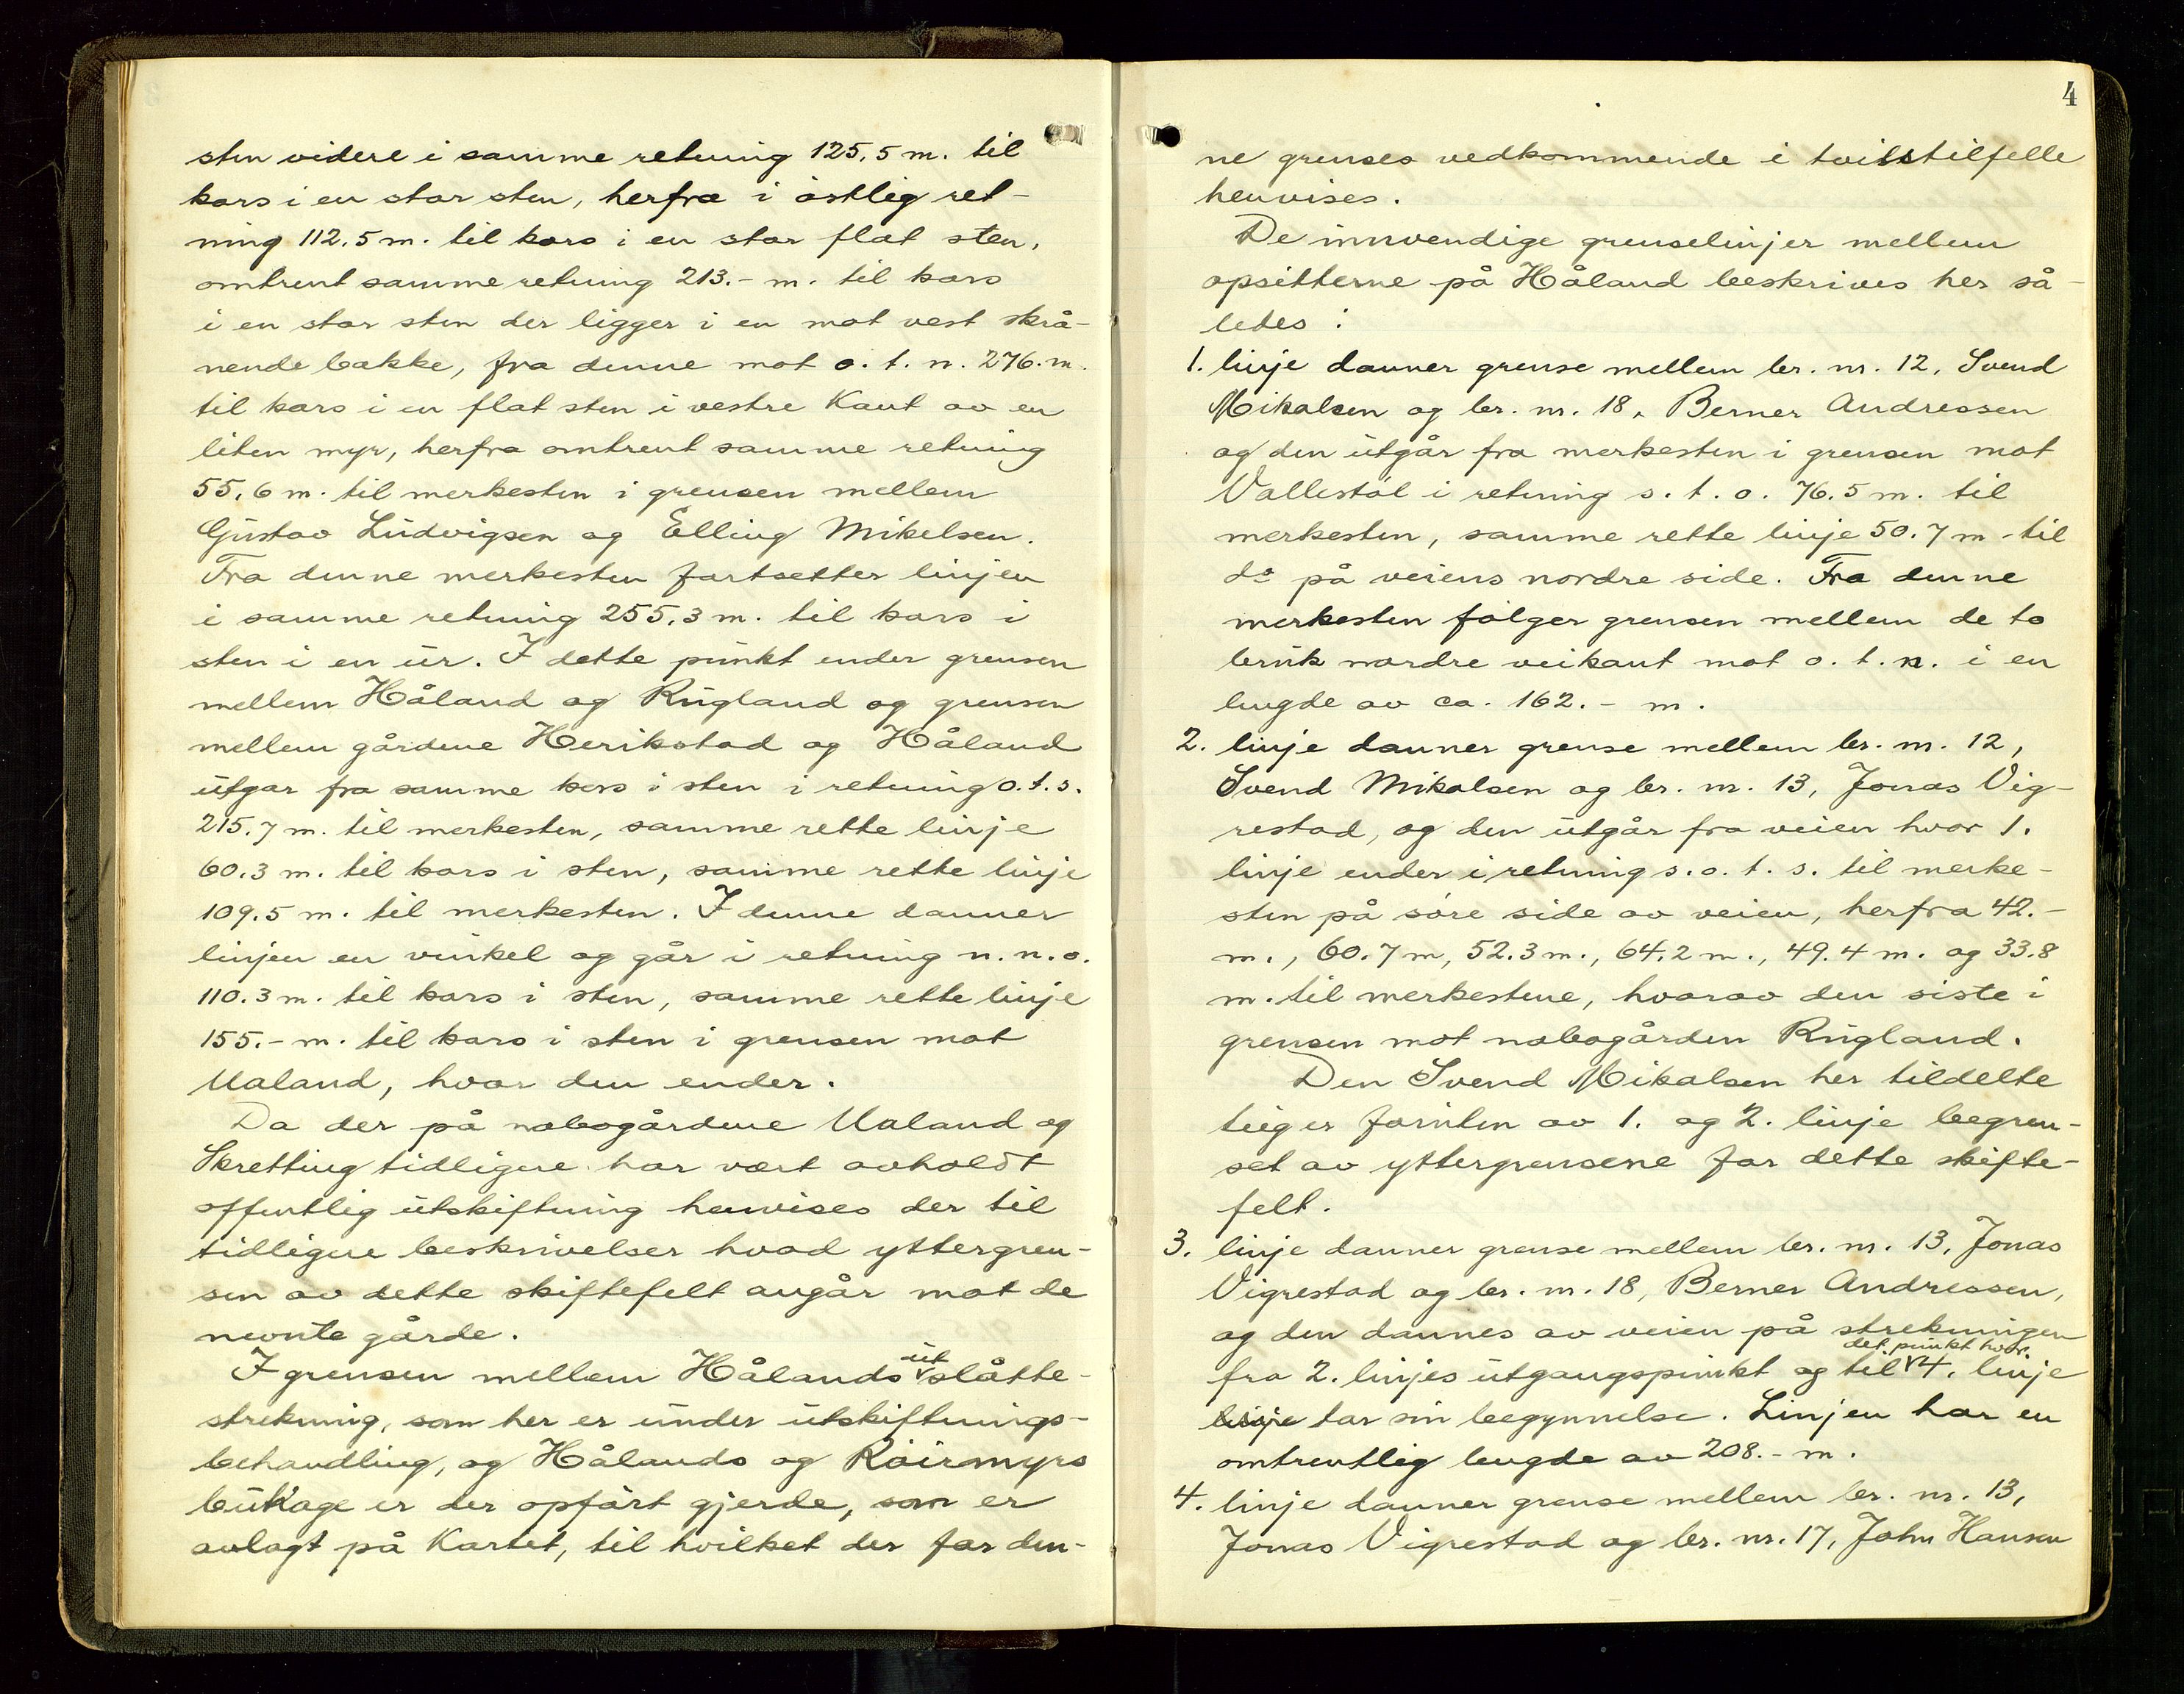 sten videre i samme retning 125,5 m. til
kors i en stor sten, herfra i östlig ret-
ning 112.5 m. til kors i en stor flat sten,
omtrent samme retning 213.- m. til kors
i en stor sten der ligger i en mot vest skrå-
nende bakke, fra denne mot o. t. n. 276. m.
til kors i en flat sten i vestre Kant av en
liten myr, herfra omtrent samme retning
55,6 m. til merkesten i grensen mellem
Gustav Ludvigsen og Elling Mikelsen.
Fra denne merkesten fortsetter linjen
i samme retning 255,3 m. til kors i
sten i en ur. I dette punkt ender grensen
mellem Håland og Rugland og grensen
mellem gårdene Herikstad og Håland
utgar fra samme kors i sten i retning o.t.s.
215.7 m. til merkesten, samme rette linje
60.3 m. til kors i sten, samme rette linje
109.5 m. til merkesten. I denne danner
linjen en vinkel og går i retning n.n.o.
110.3 m. til kors i sten, samme rette linje
155.- m. til kors i sten i grensen mot
Ualand, hvor den ender.
Da der på nabogårdene Ualand og
Skretting tidligere har vært avholdt
offentlig utskiftning henvises der til
tidligere beskrivelser hvad yttergren-
sen av dette skiftefelt angår mot de
nevnte gårde.
I grensen mellem Hålands ut slåtte-
strekning, som her er under utskiftnings-
behandling, og Hålands og Röirmyrs
bukage er der opfört gjerde, som er
avlagt på Kartet, til hvilket der for den-
4
ne grenses vedkommende i tvilstilfelle
henvises.
De innvendige grenselinjer mellem
opsitterne på Håland beskrives her så-
ledes:
1. linje danner grense mellem br. nr. 12, Svend
Mikalsen og br. nr. 18, Berner Andressen
og den utgår fra merkesten i grensen mot
Vallestöl i retning s. t. o. 76.5 m. til
merkesten, samme rette linje 50.7 m - til
do på veiens nordre side. Fra denne
merkesten fölger grensen mellem de to
bruk nordre veikant mot o. t. n. i en
lengde av ca. 162.- m.
2. linje danner grense mellem br. nr. 12,
Svend Mikalsen og br. nr. 13, Jonas Vig-
restad, og den utgår fra veien hvor 1.
linje ender i retning s.o. t. s. til merke-
sten på söre side av veien, herfra 42.-
m., 60.7 m, 52.3 m., 64.2 m., 49.4 m. og 33.8
m. til merkestene, hvorav den siste i
grensen mot nabogården Rugland.
Den Svend Mikalsen her tildelte
teig er foruten av 1. og 2. linje begren-
set av yttergrensene for dette skifte-
felt.
3. linje danner grense mellem br. nr. 13, Jonas
Vigrestad og br. nr. 18, Berner Andressen,
og den dannes av veien på strekningen
fra 2. linjes utgangspunkt og til det punkt hvor 4. linje
linje tar sin begynnelse. Linjen har en
omtrentlig lengde av 208.- m.
4. linje danner grense mellem br. nr. 13,
Jonas Vigrestad og br. nr. 17, John Hansen